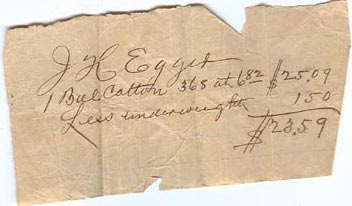 J H Egger
1 Bale Cotton 368 at 6.82 $25.09
Less underweight 1.50
$23.59